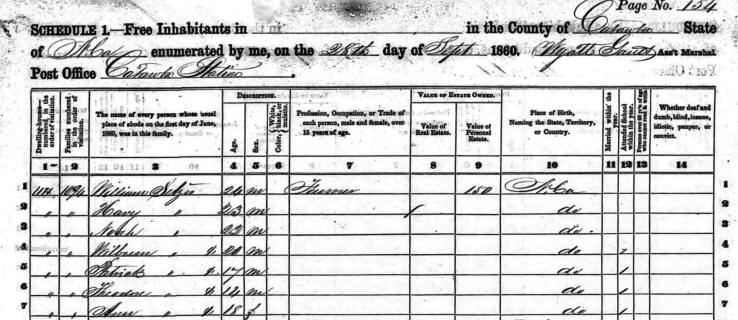 Page No. 154
SCHEDULE 1.—Free Inhabitants in in the County of Catawba State
of N. Ca enumerated by me, on the 28th day of Sept 1860. Wyatt Ass't Marshal
Post Office Catawba Station
DESCRIPTION. VALUE OF ESTATE OWNED.
Dwelling-houses—numbered in the order of visitation. Families numbered in the order of visitation. The name of every person whose usual place of abode on the first day of June, 1860, was in this family. Age. Sex. Color, White, black, or mulatto. Profession, Occupation, or Trade of each person, male and female, over 15 years of age. Value of Real Estate. Value of Personal Estate. Place of Birth, Naming the State, Territory, or Country. Married within the year. Attended School within the year. Whether deaf and dumb, blind, insane, idiotic, pauper, or convict.
1 2 3 4 5 6 7 8 9 10 11 12 13 14
1 1094 William Setzer 26 m Farmer 150 N. Ca 1
2 " " " 23 m do 2
3 " " Noah " 22 m do 3
4 " " " 20 m do 4
5 " " Patrick " 17 m do 1 5
6 " " Theodore " 14 m do 1 6
7 " " Ann " 18 f do 1 7